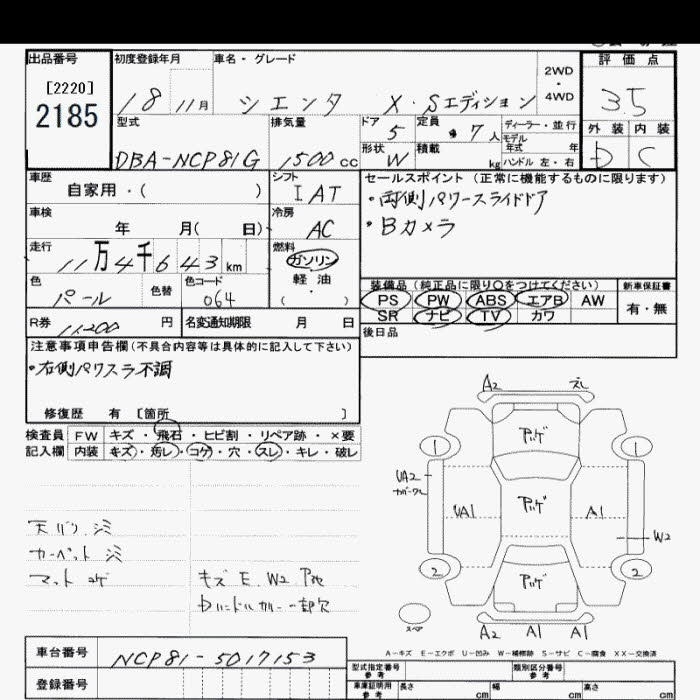 出品番号
初度登録年月
車名・グレード
評価点
[2220]
2185
18 11月
シエンタ X・Sエディション
2WD
・
4WD
3.5
型式
DBA-NCP81G
排気量
1500 cc
ドア
5
定員
7人
ディーラー・並行
モデル年式 年
形状
W
積載
kg
ハンドル 左・右
外装 内装
D C
車歴
自家用・( )
シフト
IAT
セールスポイント (正常に機能するものに限ります)
・両側パワースライドドア
・Bカメラ
車検
年 月( 日)
冷房
AC
走行
11万4千643km
燃料
ガソリン
軽油
・
( )
色
パール
色替
色コード
064
装備品(純正品に限り○をつけてください)
新車保証書
PS PW ABS エアB AW
SR ナビ TV カワ
有・無
R券
11200円
名変通知期限 月 日
後日品
注意事項申告欄(不具合内容等は具体的に記入して下さい)
・右側パワスラ不調
修復歴 有 [箇所 ]
検査員 FW キズ・飛石・ヒビ割・リペア跡・×要
記入欄 内装 キズ・汚レ・コゲ・穴・スレ・キレ・破レ
A2
1 1
UA2
UA1
A1
W2
2 2
スペア
A2 A1 A1
天バリ シミ
カーペット シミ
マット コゲ
キズ E. W2
一部欠
A-キズ E-エクボ U-凹み W-補修跡 S-サビ C-腐食 XX-交換済
車台番号
NCP81-5017153
登録番号
型式指定番号
参考
類別区分番号
参考
車庫証明用
参考
長さ cm
幅 cm
高さ cm